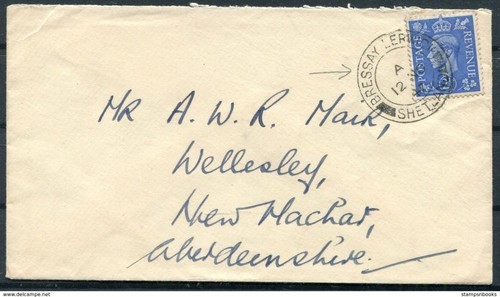 BRESSAY LERWICK
A
12
SHETLAND
POSTAGE REVENUE
Mr A. W. R. Mark,
Wellesley,
New Machar,
Aberdeenshire.
stamponbooks